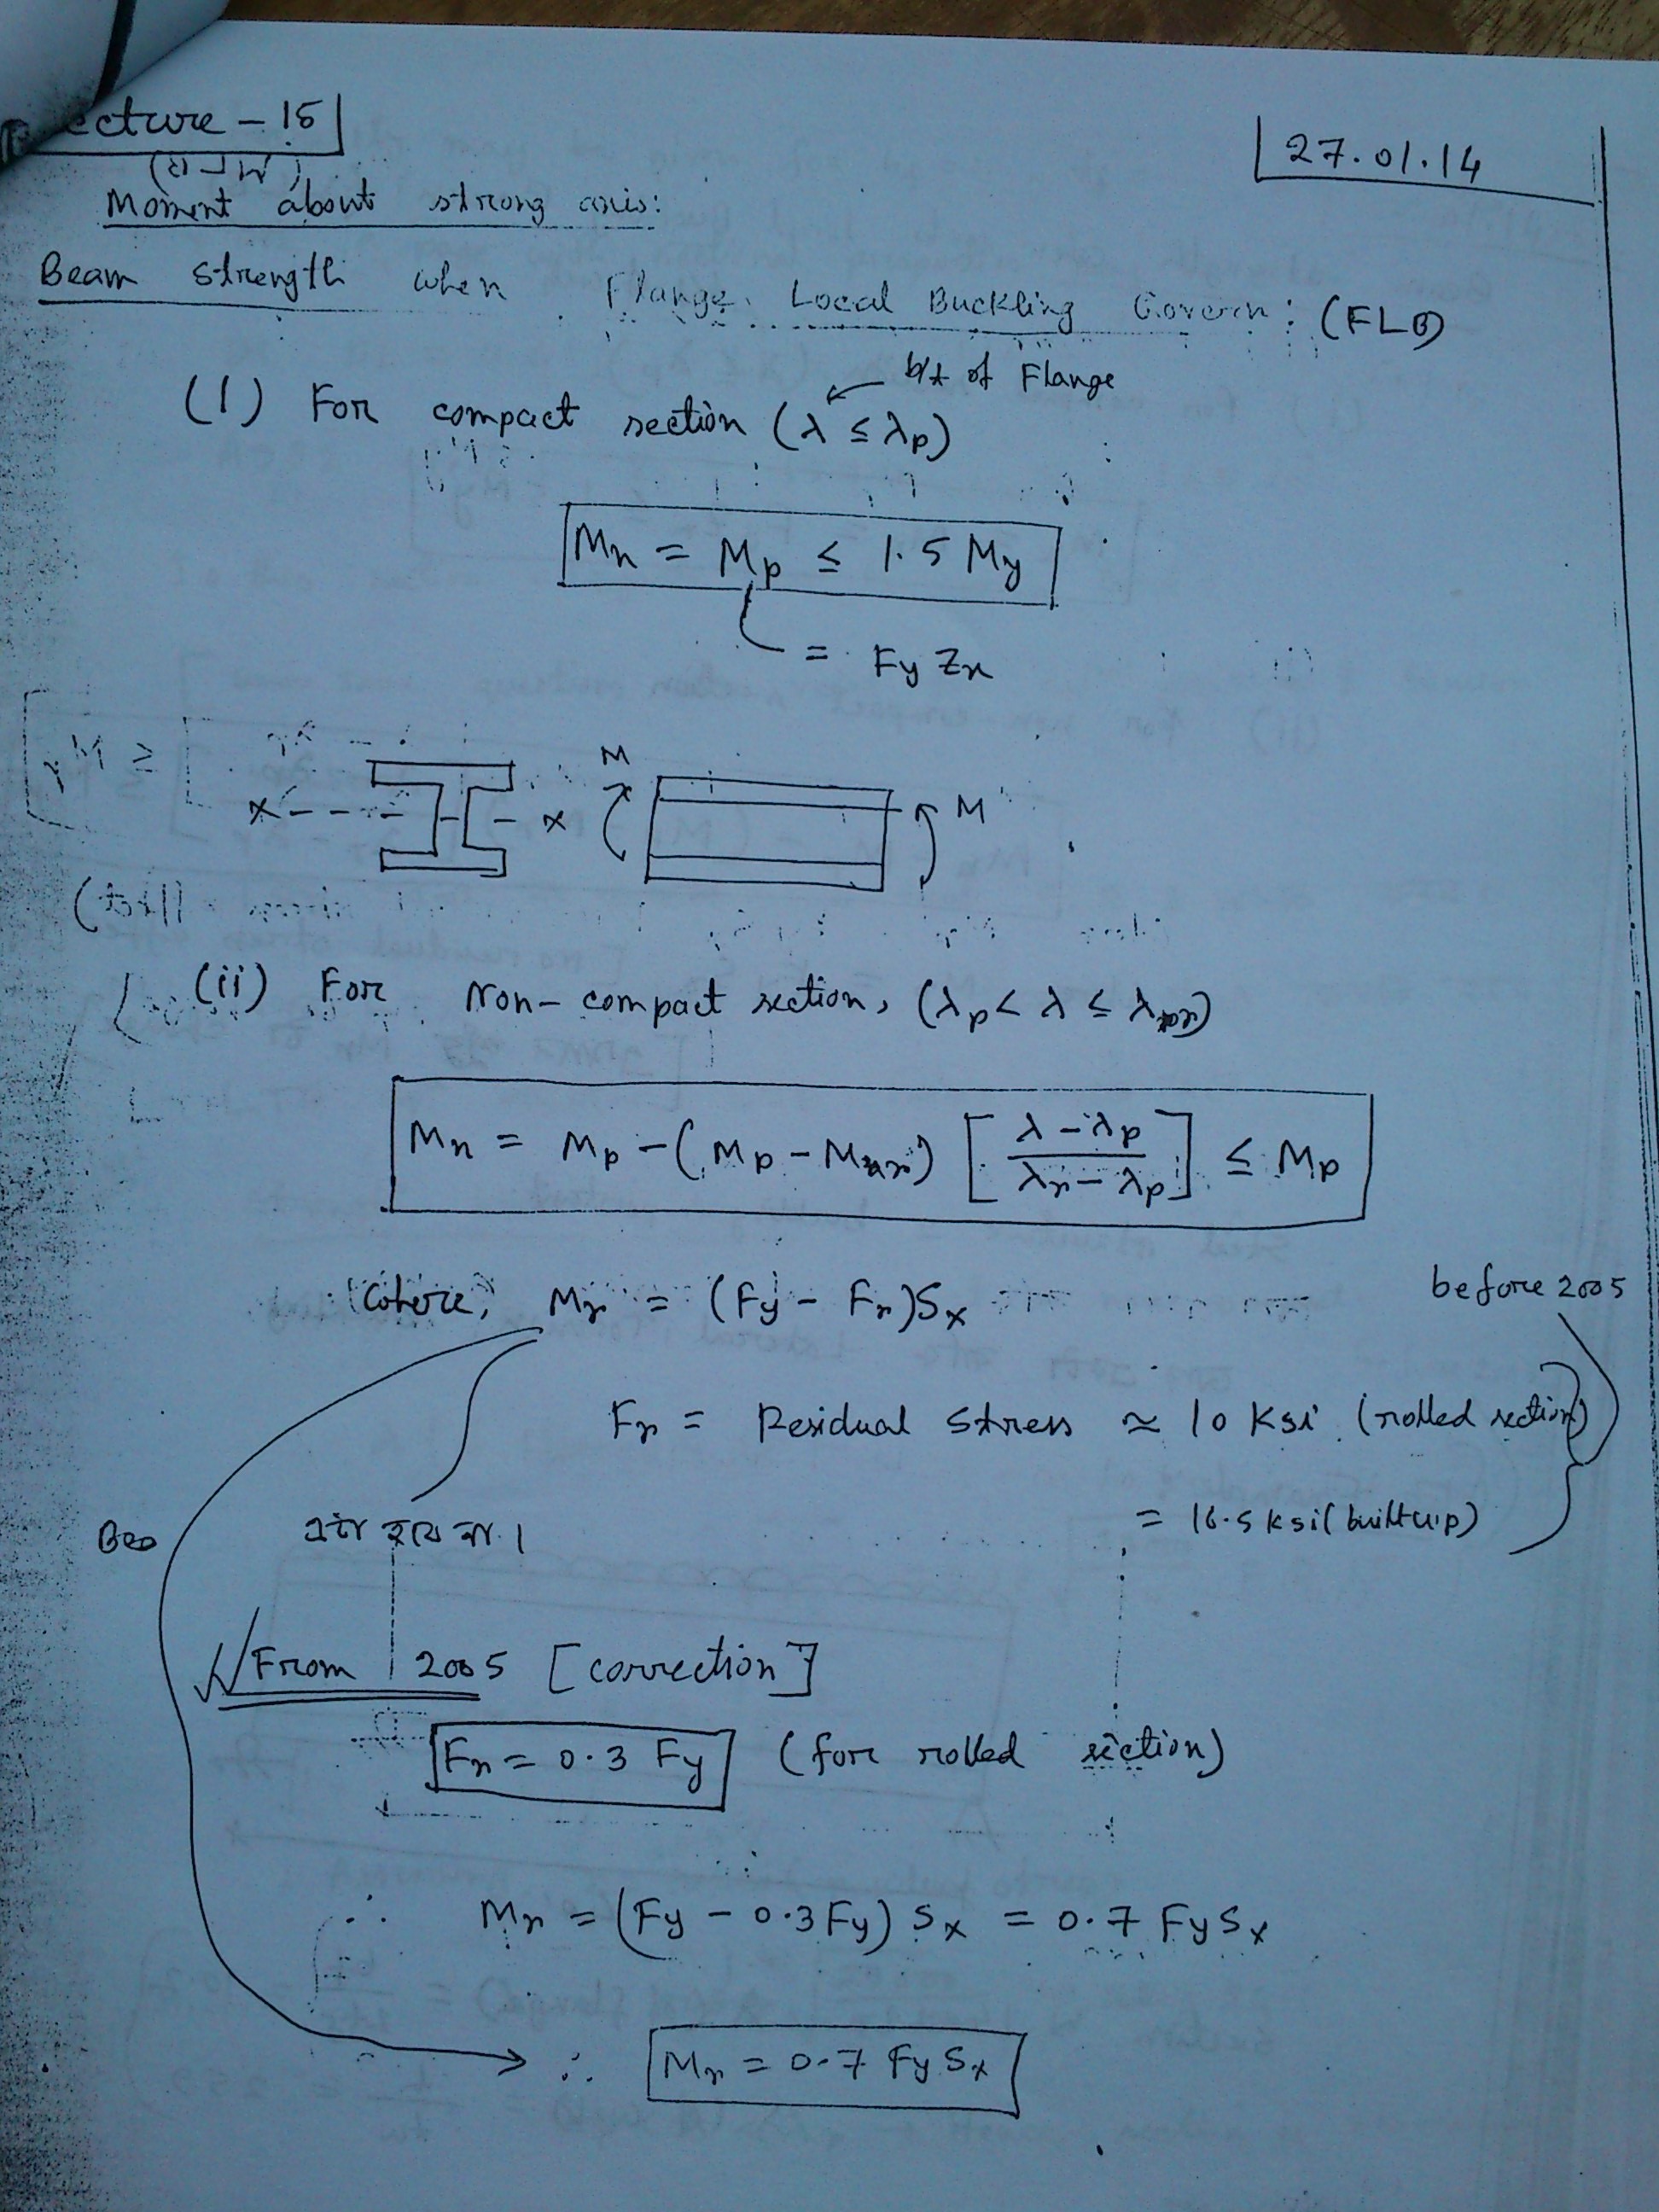 ecture - 15
27.01.14
Moment about strong axis:
Beam strength when Flange Local Buckling Govern: (FLB)
b/t of Flange
(1) For compact section (λ ≤ λp)
Mn = Mp ≤ 1.5 My
= Fy Zx
M
x - - - - x
M
(ii) For Non-compact section, (λp < λ ≤ λr)
Mn = Mp - (Mp - Mr) [λ - λp / λr - λp] ≤ Mp
where, Mr = (Fy - Fr) Sx
before 2005
Fr = Residual Stress ≈ 10 ksi (rolled section)
= 16.5 ksi (built up)
হবে না।
From 2005 [correction]
Fr = 0.3 Fy (for rolled section)
∴ Mr = (Fy - 0.3 Fy) Sx = 0.7 Fy Sx
∴ Mr = 0.7 Fy Sx